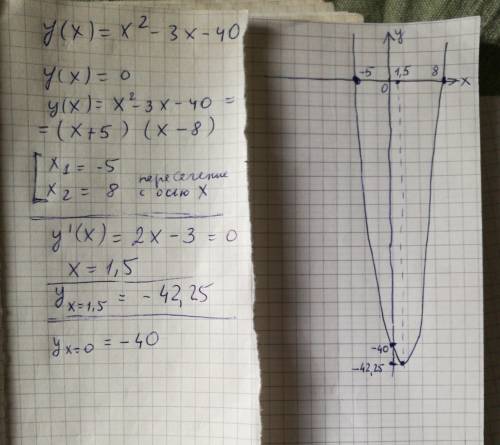 y(x) = x² - 3x - 40
y(x) = 0
y(x) = x² - 3x - 40 =
= (x+5) (x-8)
x₁ = -5 пересечение
x₂ = 8 с осью x
y'(x) = 2x - 3 = 0
x = 1,5
yₓ₌₁,₅ = -42,25
yₓ₌₀ = -40
y
-5 1,5 8
0 x
-40
-42,25